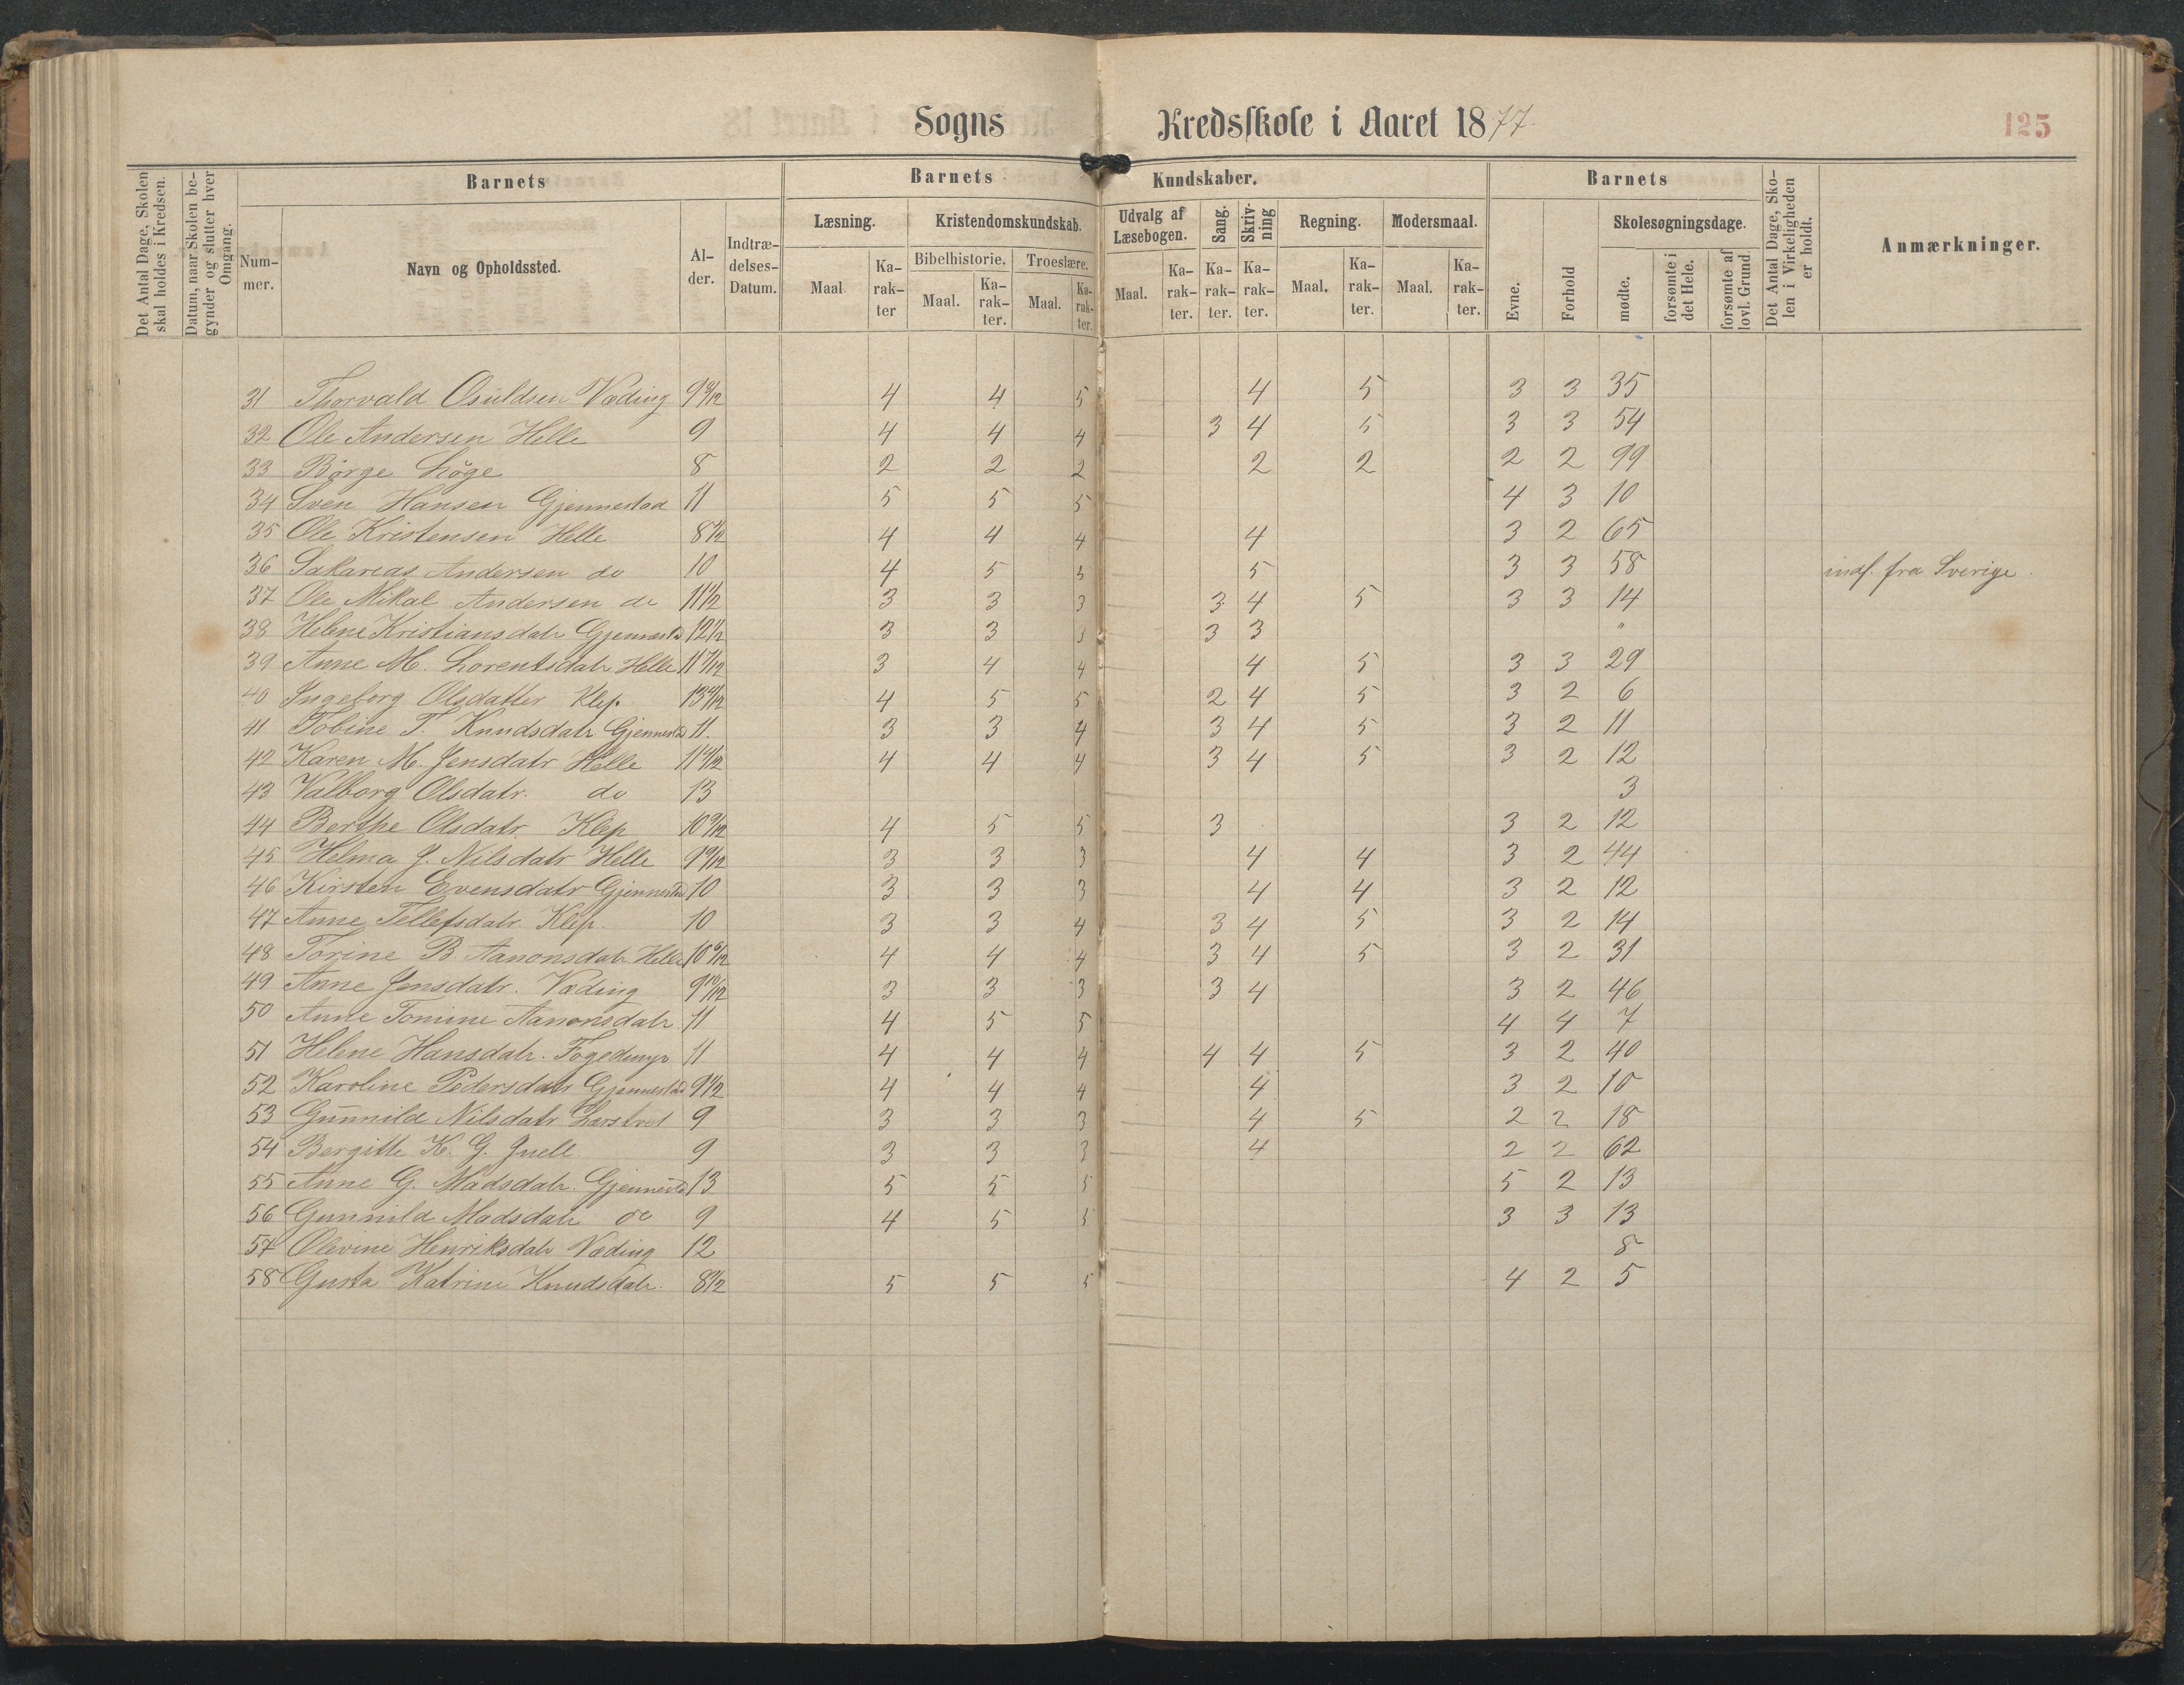 Sogns Kredsskole i Aaret 1877.
125
Det Antal Dage, Skolen skal holdes i Kredsen.
Datum, naar Skolen begynder og slutter hver Omgang.
Barnets
Nummer.
Navn og Opholdssted.
Alder.
Indtrædelses-Datum.
Barnets Kundskaber.
Læsning.
Maal
Karakter
Kristendomskundskab.
Bibelhistorie.
Maal.
Karakter.
Troeslære.
Maal.
Karakter.
Udvalg af Læsebogen.
Maal.
Karakter.
Sang.
Karakter.
Skrivning
Karakter.
Regning.
Maal.
Karakter.
Modersmaal.
Maal.
Karakter.
Barnets
Evne.
Forhold
Skolesøgningsdage.
mødte.
forsømte i det Hele.
forsømte af lovl. Grund.
Det Antal Dage, Skolen i Virkeligheden er holdt.
Anmærkninger.
31 Thorvald Osuldsen Væding 9 9/12 4 4 5 4 5 3 3 35
32 Ole Andersen Helle 9 4 4 4 3 4 5 3 3 54
33 Börge Löge 8 2 2 2 2 2 2 2 99
34 Sven Hansen Gjennestad 11 5 5 5 4 3 10
35 Ole Kristensen Helle 8 1/2 4 4 4 4 3 2 65
36 Sakarias Andersen do 10 4 5 5 5 3 3 58 indf. fra Sverige
37 Ole Mikal Andersen do 11 1/2 3 3 3 3 4 5 3 3 14
38 Helene Kristiansdatr Gjennestd 12 1/2 3 3 3 3 3 "
39 Anne M. Lorentsdatr Helle 11 7/12 3 4 4 4 5 3 3 29
40 Ingeborg Olsdatter Klep. 13 4/12 4 5 5 2 4 5 3 2 6
41 Tobine T. Knudsdatr Gjennestd 11. 3 3 4 3 4 5 3 2 11
42 Karen M. Jensdatr Helle 11 4/12 4 4 4 3 4 5 3 2 12
43 Valborg Olsdatr. do 13 3
44 Berthe Olsdatr Klep 10 9/12 4 5 5 3 3 2 12
45 Helma J. Nilsdatr Helle 9 9/12 3 3 3 4 4 3 2 44
46 Kirsten Evensdatr Gjennestad 10 3 3 3 4 4 3 2 12
47 Anne Tellefsdatr. Klep. 10 3 3 4 3 4 5 3 2 14
48 Torine B. Aanonsdatr Helle 10 6/12 4 4 4 3 4 5 3 2 31
49 Anne Jensdatr. Væding 9 10/12 3 3 3 3 4 3 2 46
50 Anne Tomine Aanonsdatr 11 4 5 5 4 4 7
51 Helene Hansdatr. 11 4 4 4 4 4 5 3 2 40
52 Karoline Pedersdatr Gjennestad 9 1/2 4 4 4 4 3 2 10
53 Gunnild Nilsdatr 9 3 3 3 4 5 2 2 18
54 Bergitte K. G. Juell 9 3 3 3 4 2 2 62
55 Anne G. Madsdatr. Gjennestd 13 5 5 5 5 2 13
56 Gunnild Madsdatr do 9 4 5 5 3 3 13
57 Olevine Henriksdatr Væding 12 8
58 Gusta Katrine Knudsdatr. 8 1/2 5 5 5 4 2 5